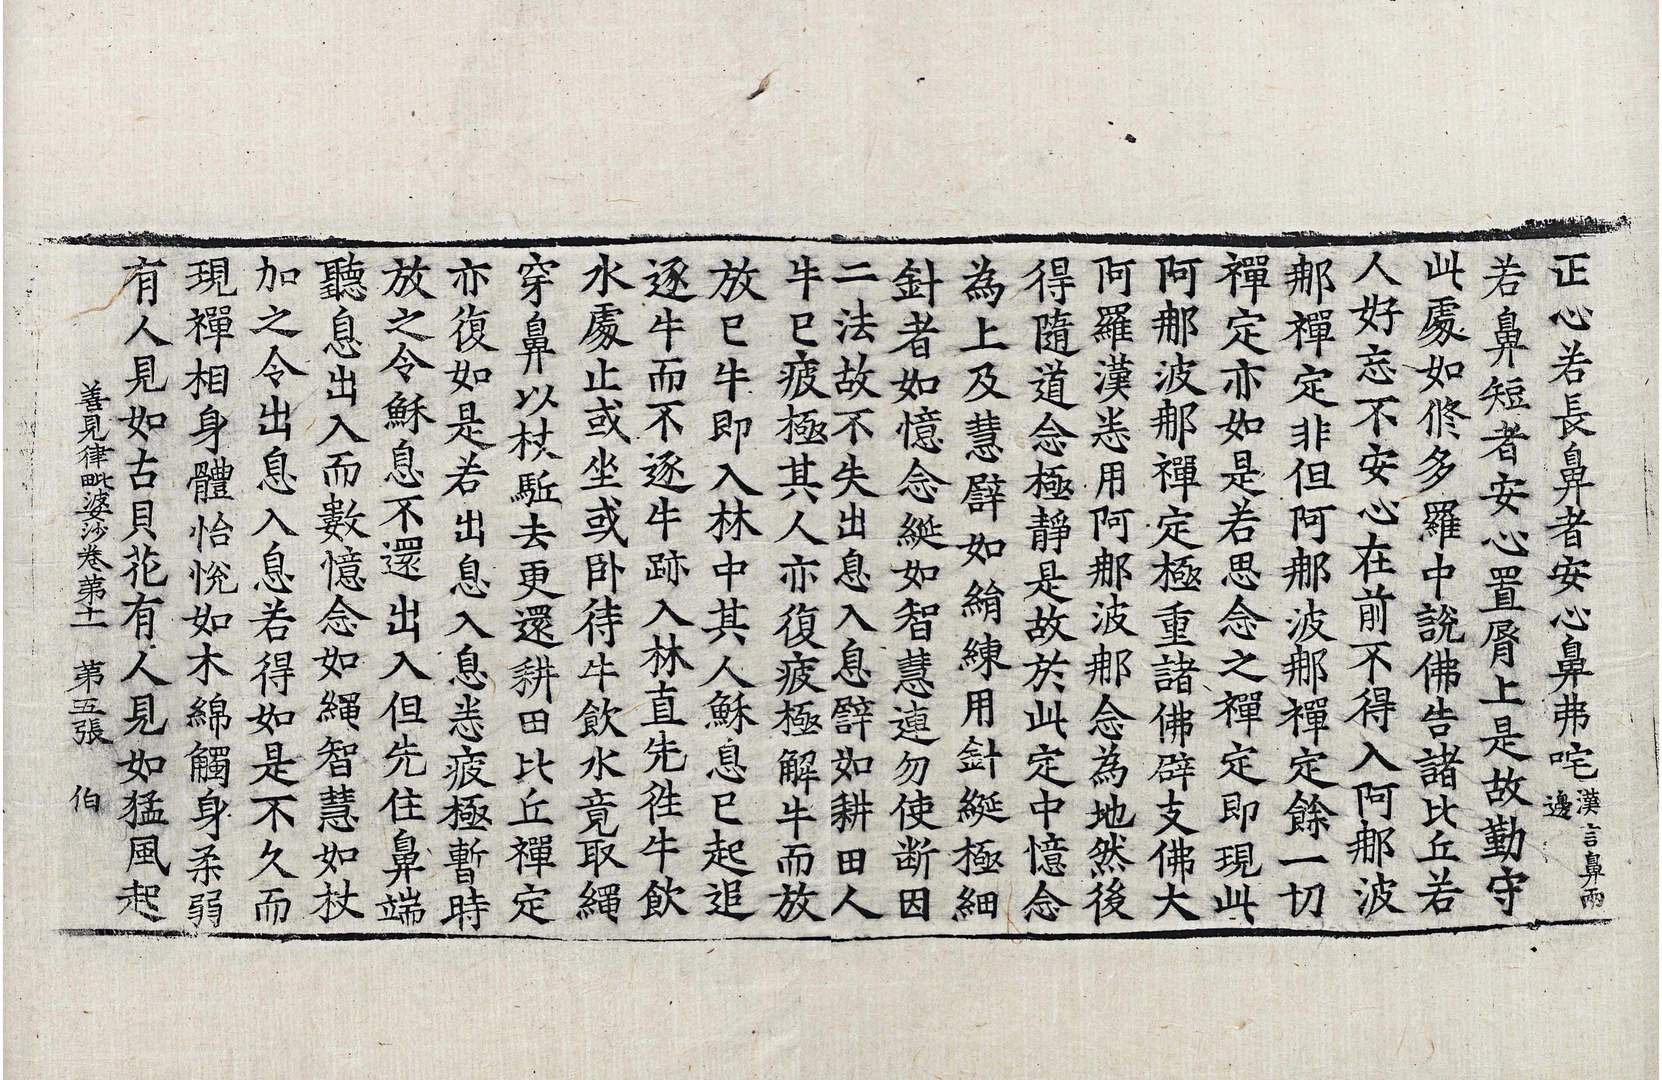 正心若長鼻者安心鼻弗咤漢言鼻兩邊
若鼻短者安心置脣上是故勤守
此處如修多羅中說佛告諸比丘若
人好忘不安心在前不得入阿那波
那禪定非但阿那波那禪定餘一切
禪定亦如是若思念之禪定即現此
阿那波那禪定極重諸佛辟支佛大
阿羅漢悉用阿那波那念為地然後
得隨道念極靜是故於此定中憶念
為上及慧譬如絹練用針綖極細
針者如憶念綖如智慧連勿使断因
二法故不失出息入息譬如耕田人
牛已疲極其人亦復疲極解牛而放
放已牛即入林中其人穌息已起追
逐牛而不逐牛跡入林直先往牛飲
水處止或坐或卧待牛飲水竟取繩
穿鼻以杖駈去更還耕田比丘禪定
亦復如是若出息入息悉疲極暫時
放之令穌息不還出入但先住鼻端
聽息出入而數憶念如繩智慧如杖
加之令出息入息若得如是不久而
現禪相身體怡悅如木綿觸身柔弱
有人見如古貝花有人見如猛風起
善見律毗婆沙卷第十一　第五張　伯